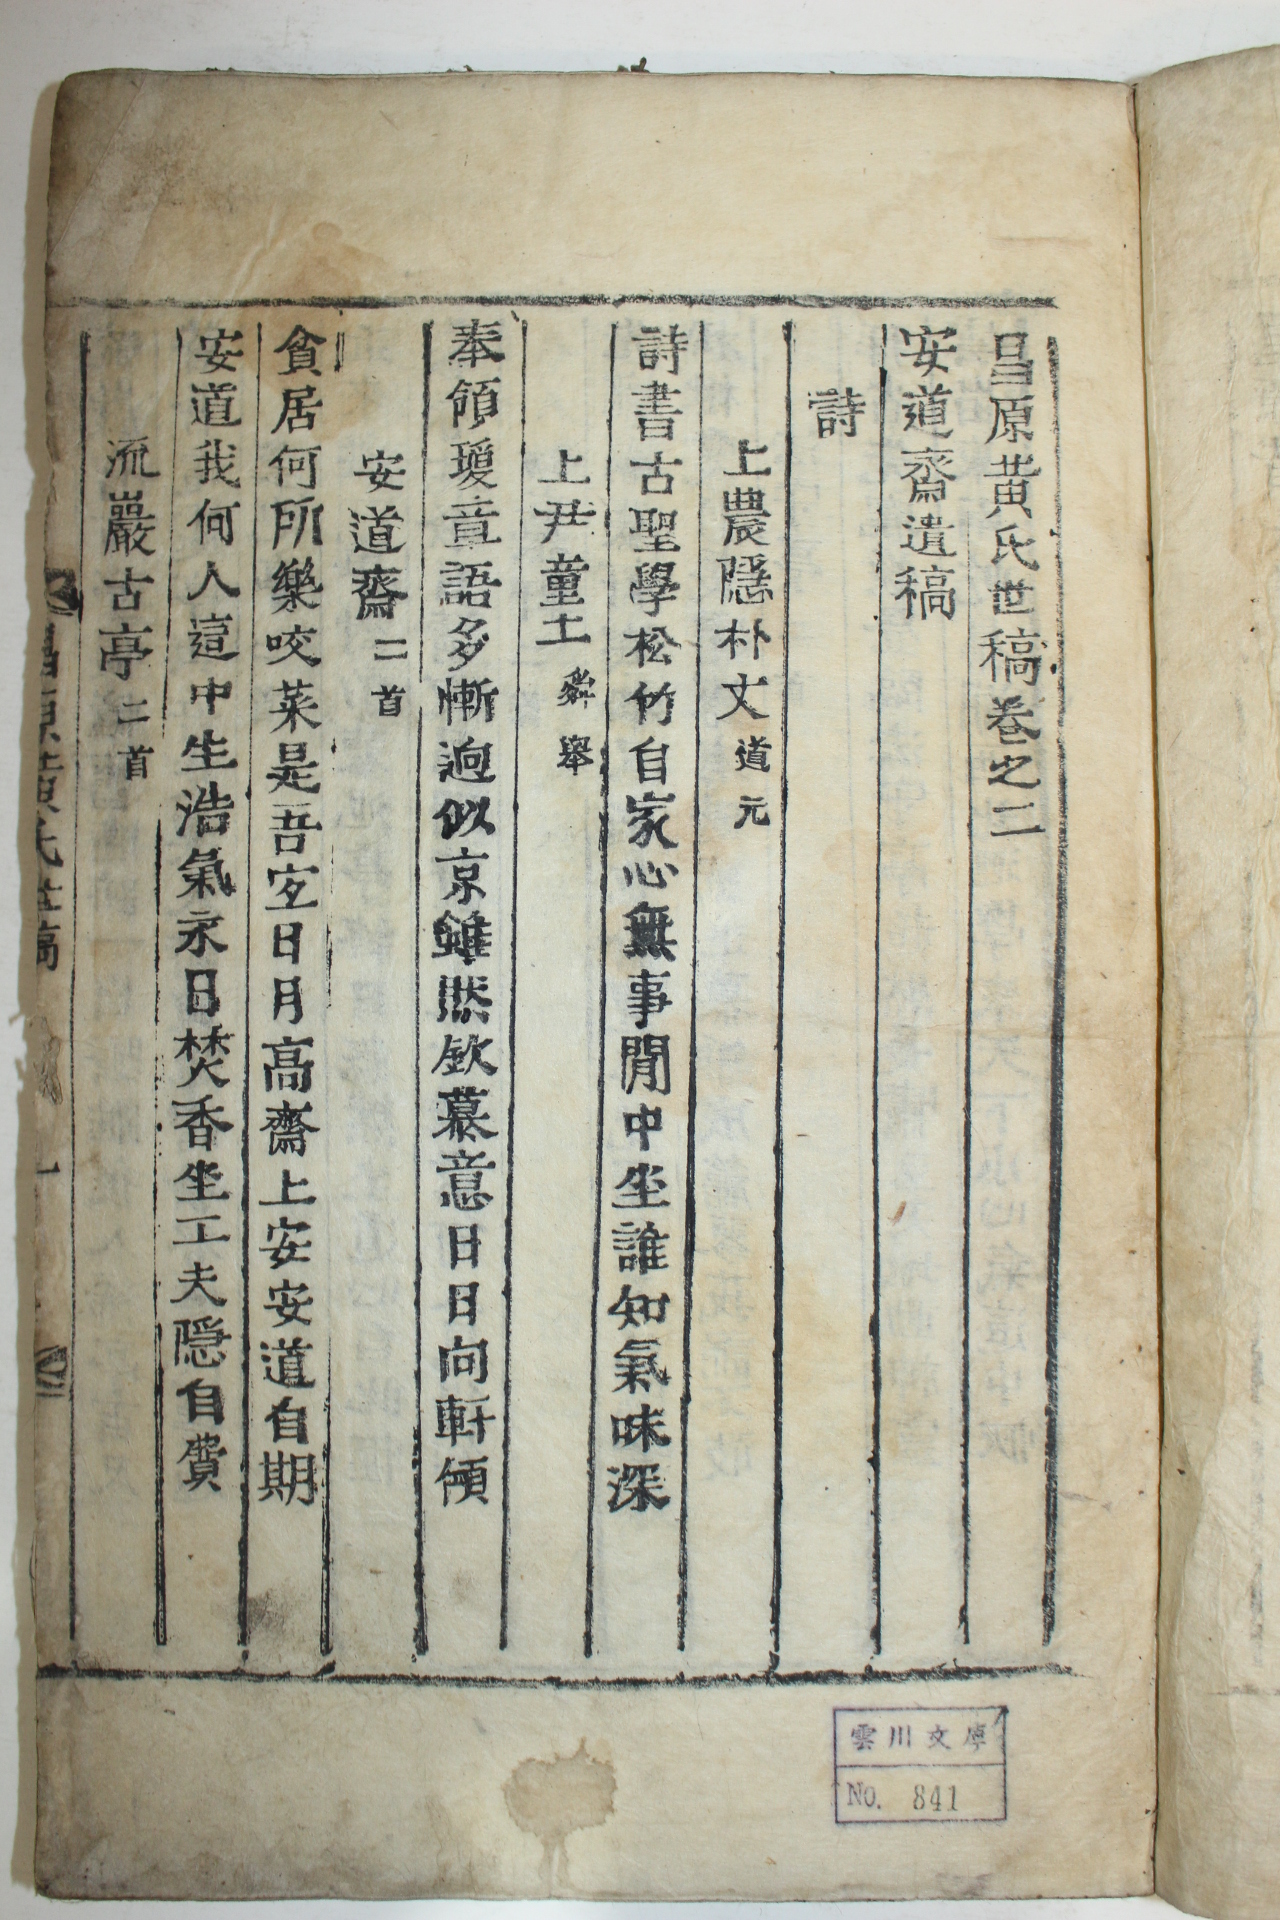 昌原黄氏世稿卷之二
安道齋遺稿
詩
上農隱朴丈道元
詩書古聖學松竹自家心無事閒中坐誰知氣味深
上尹童土舜舉
奉領瓊章語多慚逈似京雖然欽慕意日日向軒傾
安道齋二首
貧居何所樂咬菜是吾宜日月高齋上安安道自期
安道我何人這中生浩氣永日焚香坐工夫隱自費
流巖古亭二首
昌原黄氏世稿
一
雲川文庫
No. 841